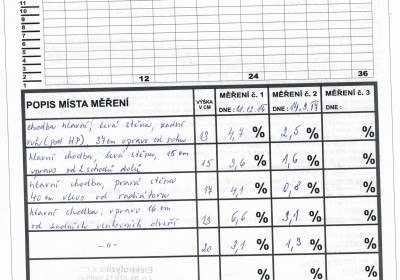 12
11
10
9
8
7
6
5
4
3
2
1
12 24 36
POPIS MÍSTA MĚŘENÍ VÝŠKA V CM MĚŘENÍ č. 1 MĚŘENÍ č. 2 MĚŘENÍ č. 3
DNE: DNE: DNE:
chodba hlavní, levá stěna, zadní
roh (pod HP), 37cm vpravo od rohu 19 4,7 % 2,5 % %
hlavní chodba, levá stěna, 16 cm
vpravo od 2. schodu dolů 15 3,6 % 1,6 % %
hlavní chodba, pravá stěna
40 cm vlevo od radiátoru 17 4,1 % 0,8 % %
hlavní chodba, vpravo 16 cm
od zadních venkovních dveří 19 6,6 % 3,1 % %
-„- 20 3,1 % 1,9 % %
% % %